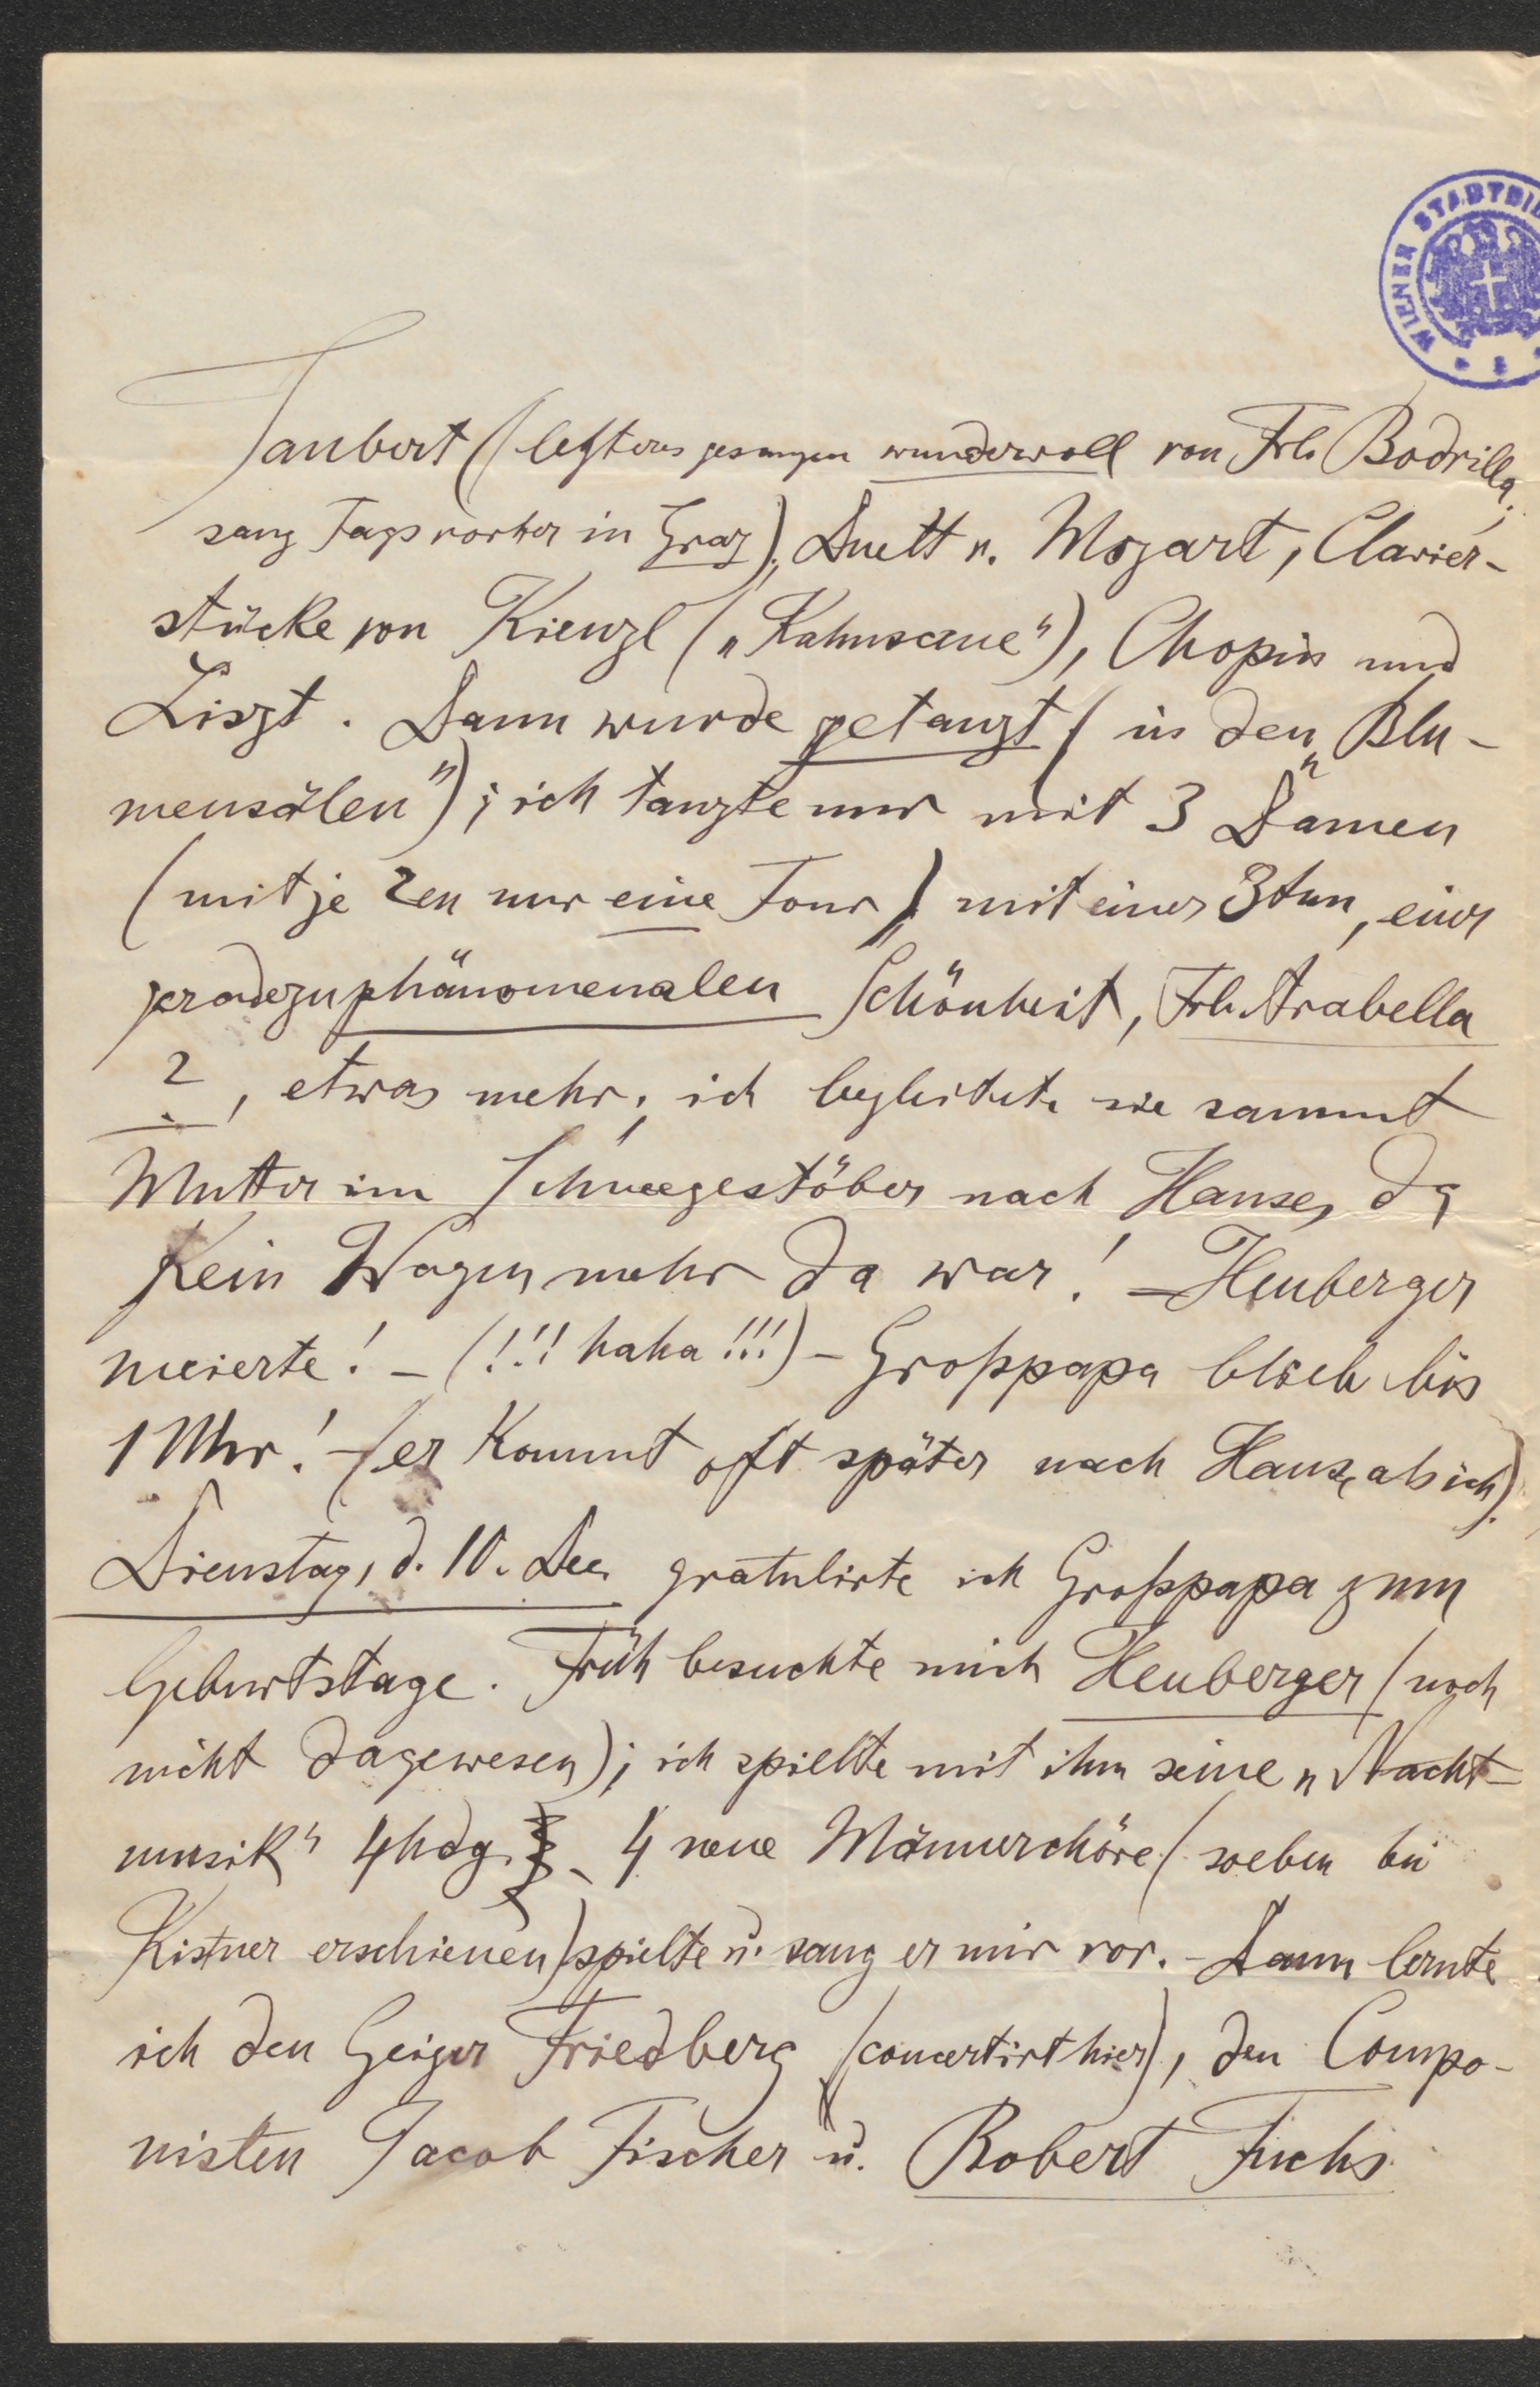 WIENER STADTBI
Taubert (letzteres gesungen wundervoll von Frl. Bodrilla;
sang Tags vorher in Graz); Duett v. Mozart, Clavier-
stücke von Kienzl („Kahnscene“), Chopin und
Liszt. Dann wurde getanzt (in den „Blu-
mensälen“); ich tanzte nur mit 3 Damen
(mit je 2en nur eine Tour), mit einer 3ten, einer
geradezu phänomenalen Schönheit, Frl. Arabella
?, etwas mehr; ich begleitete sie sammt
Mutter im Schneegestöber nach Hause, da
kein Wagen mehr da war! – Heuberger
meierte! – (!!! haha !!!) – Großpapa blieb bis
1 Uhr! – (er kommt oft später nach Hause als ich).
Dienstag, d. 10. Dec. gratulirte ich Großpapa zum
Geburtstage. Früh besuchte mich Heuberger (noch
nicht dagewesen); ich spielte mit ihm seine „Nacht-
musik“ 4hdg. – 4 neue Männerchöre (soeben bei
Kistner erschienen) spielte u. sang er mir vor. – Dann lernte
ich den Geiger Friedberg (concertirt hier), den Compo-
nisten Jacob Fischer u. Robert Fuchs